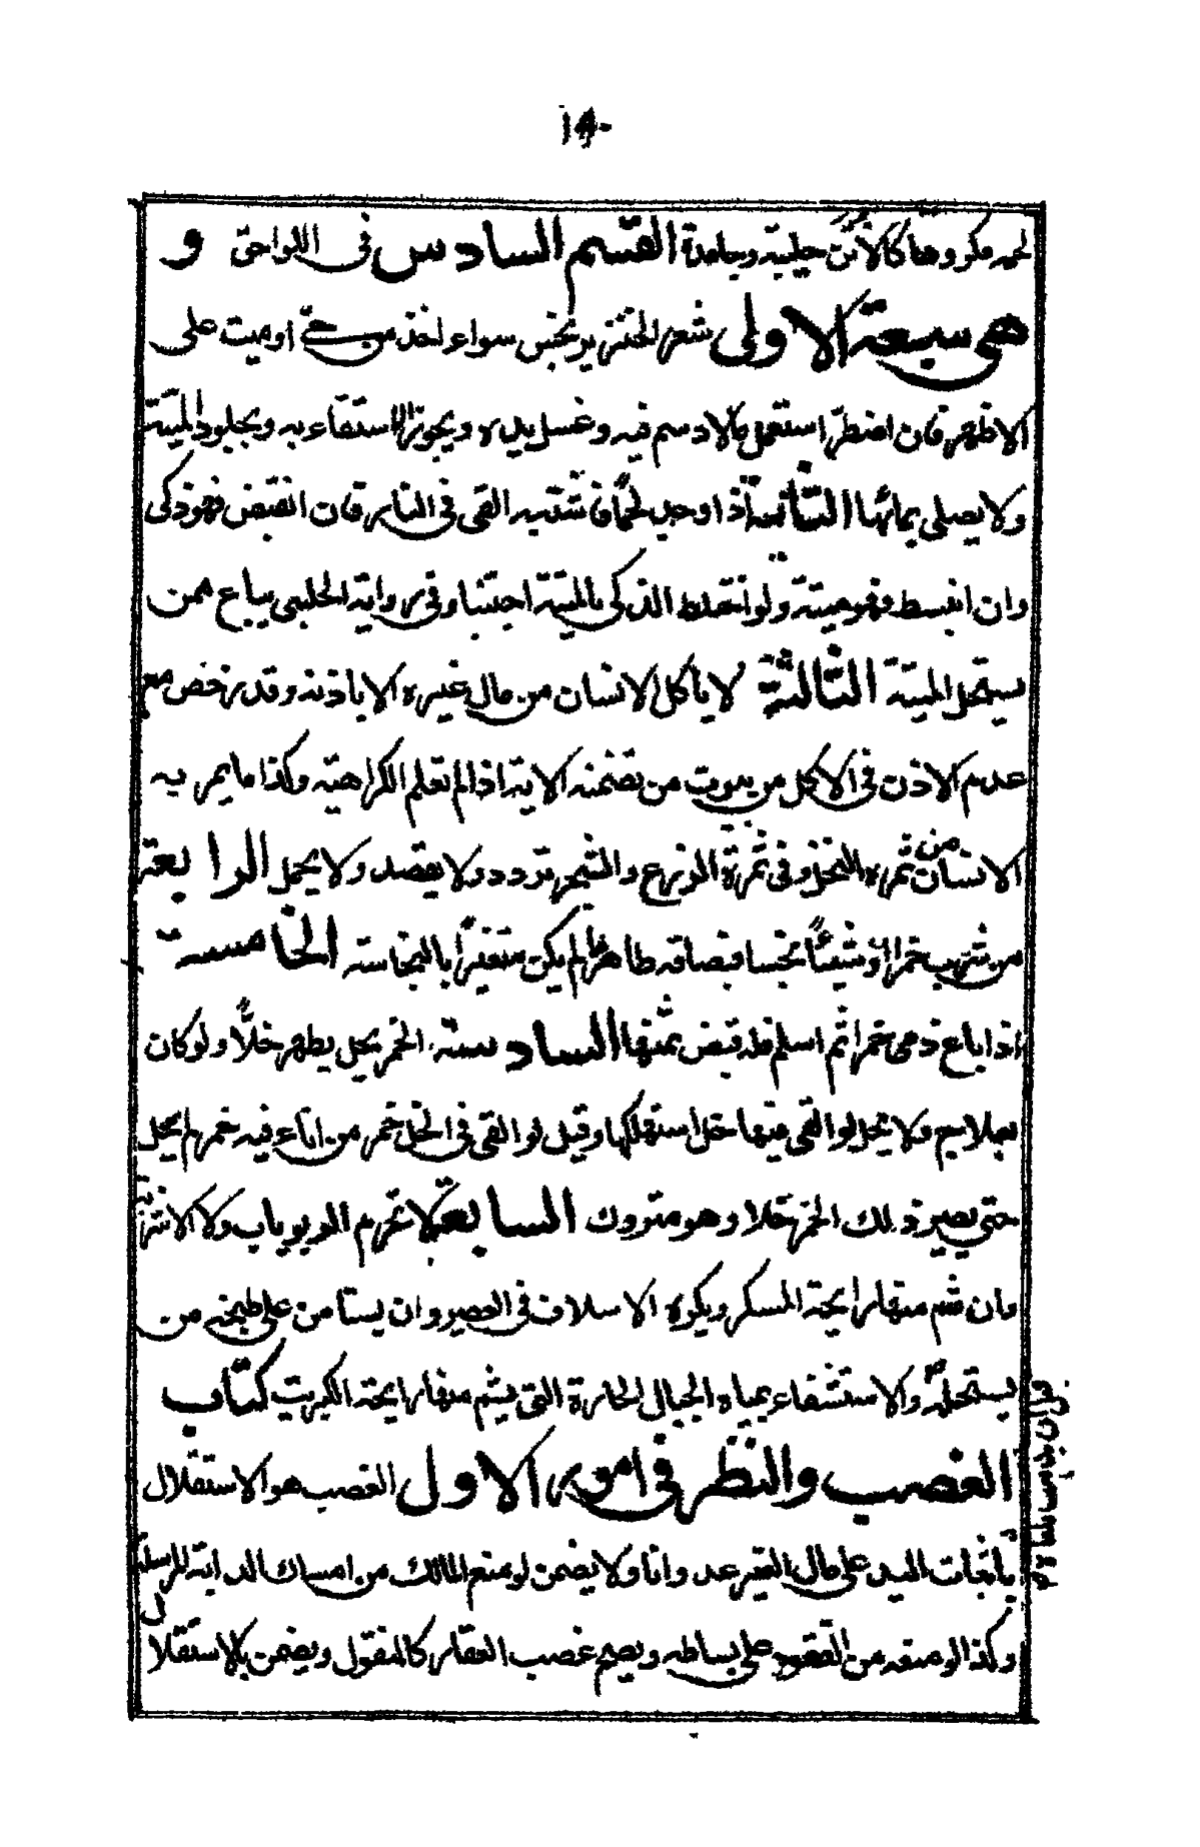 ١٤٠
لحمه مكروها كالاتن حليبه وجامدة القسم السادس فى اللواحق و
هى سبعة الاولى شعر الخنزير نجس سواء اخذ من حىّ او ميت على
الاظهر فان اضطر استعمل مالا دسم فيه وغسل يده ويجوز الاستقاء به وبجلود الميتة
ولا يصلى بمائها الثانية اذا وجد لحمًا فاشتبه القى فى النار فان انقبض فهو ذكى
وان انبسط فهو ميتة ولو اختلط الذكى بالميتة اجتنبا وفى رواية الحلبى يباع ممن
يستحل الميتة الثالثة لا يأكل الانسان من مال غيره الا باذنه وقد رخص مع
عدم الاذن فى الاكل من بيوت من تضمنته الاية اذا لم تعلم الكراهية وكذا ما يمر به
الانسان من ثمرة النخل وفى ثمرة الزرع والشجر تردد ولا يقصد ولا يحمل الرابعة
من شرب خمرا او شيئًا نجسا فبصاقه طاهر ما لم يكن متغيرًا بالنجاسة الخامسة
اذا باع ذمى خمرا ثم اسلم فله قبض ثمنها السادسة الخمر يحل يطهر خلًّا ولو كان
بعلاج ولا يحل لو القى فيها خل استهلكها وقيل لو القى فى الخل خمر من اناء فيه خمر لم يحل
حتى يصير ذلك الخمر خلا وهو متروك السابعة لا تحرم الربوبات ولا الاشربة
وان شم منها رايحة المسكر ويكره الاسلاف فى العصير وان يستامن على طبخه من
يستحله والاستشفاء بمياه الجبال الحارة التى يشم منها رايحة الكبريت كتاب
الغصب والنظر فى امور الاول الغصب هو الاستقلال
باثبات اليد على مال الغير عدوانا ولا يضمن لو منع المالك من امساك الدابة المرسلة
وكذا لو منعه من القعود على بساطه ويصح غصب العقار كالمنقول ويضمن بالاستقلال